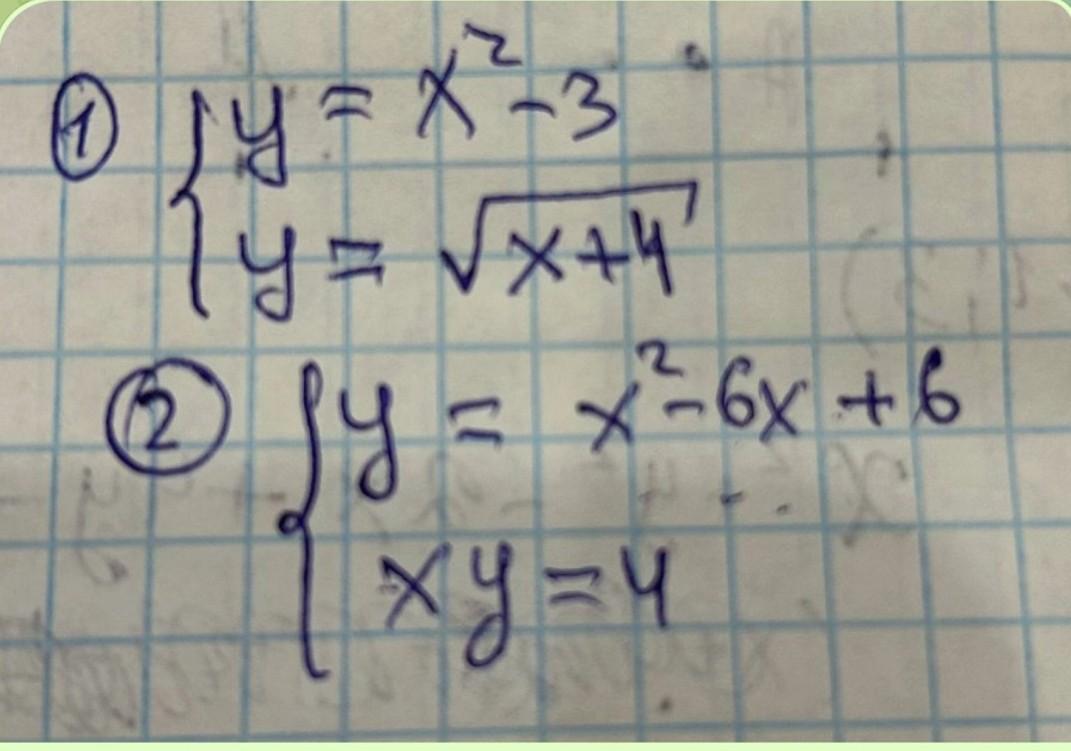 ① { y = x² - 3
y = √(x+4)
② { y = x² - 6x + 6
xy = 4